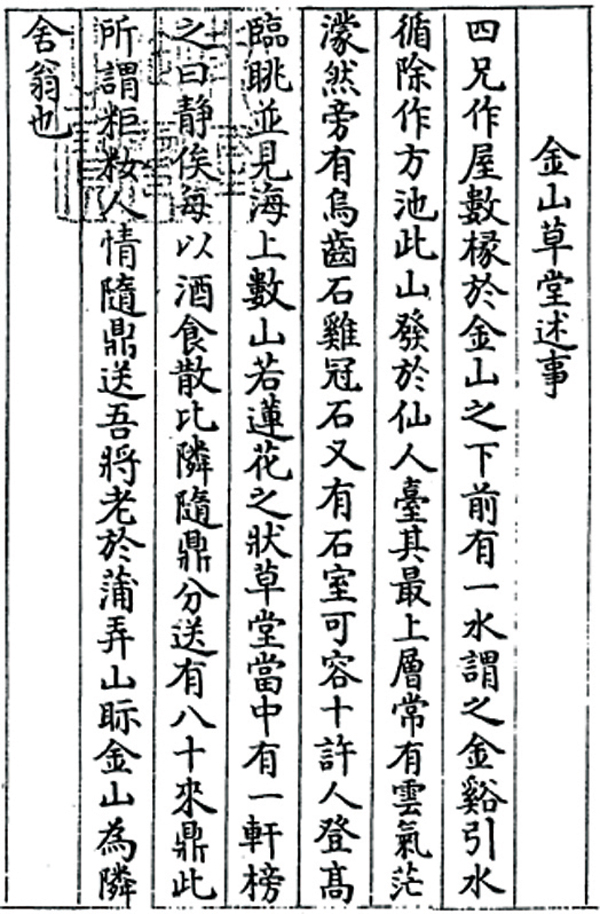 金山草堂述事
四兄作屋數椽於金山之下前有一水謂之金谿引水
循除作方池此山發於仙人臺其最上層常有雲氣茫
濛然旁有烏齒石雞冠石又有石室可容十許人登髙
臨眺並見海上數山若蓮花之狀草堂當中有一軒榜
之曰静俟每以酒食散比隣隨鼎分送有八十來鼎此
所謂粔籹人情隨鼎送吾將老於蒲弄山眎金山為隣
舍翁也